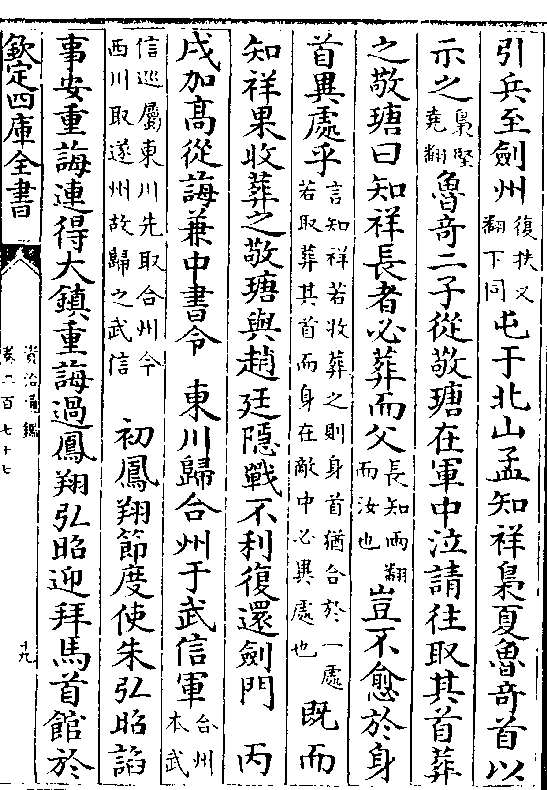 引兵至劍州復扶又翻下同屯于北山孟知祥梟夏魯竒首以
示之梟堅堯翻魯竒二子從敬瑭在軍中泣請往取其首葬
之敬瑭曰知祥長者必葬而父長知兩翻而汝也豈不愈於身
首異處乎言知祥若收葬之則身首猶合於一處若取葬其首而身在敵中必異處也既而
知祥果收葬之敬瑭與趙廷隱戰不利復還劍門　丙
戌加高從誨兼中書令　東川歸合州于武信軍合州本武
信巡屬東川先取合州今西川取遂州故歸之武信　初鳳翔節度使朱弘昭諂
事安重誨連得大鎮重誨過鳳翔弘昭迎拜馬首館於
欽定四庫全書
資治通鑑
卷二百七十七
十九